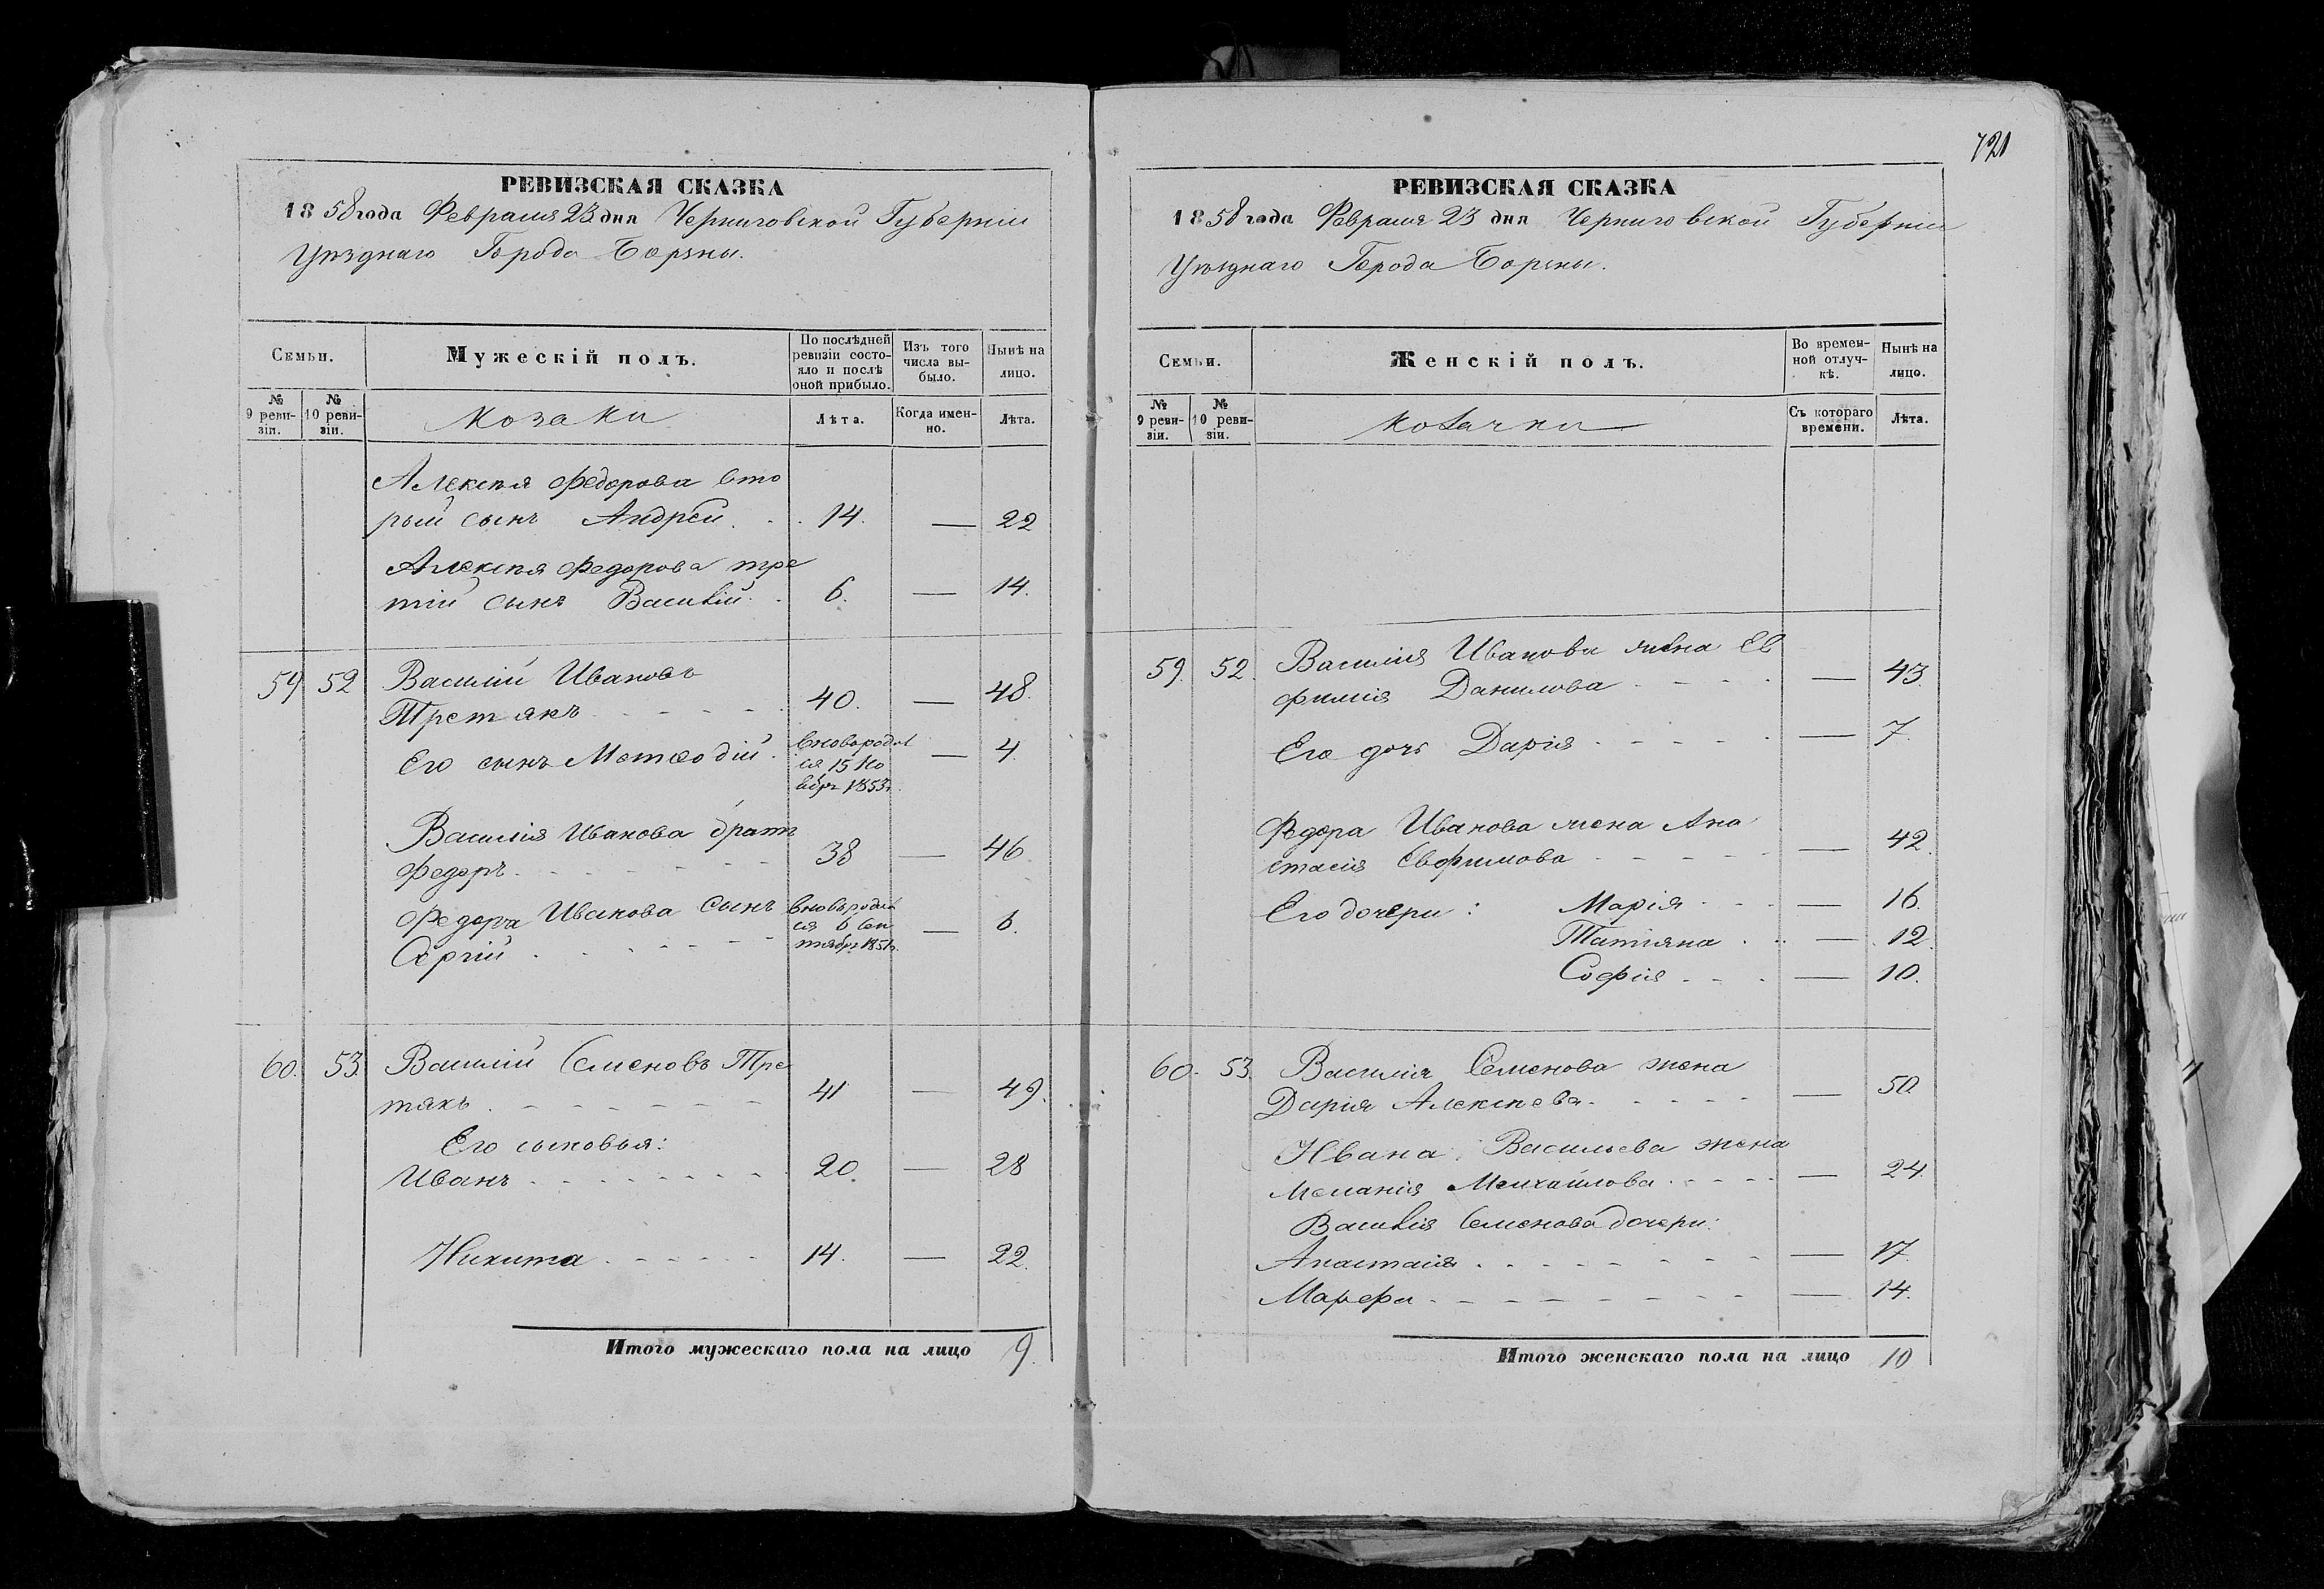 РЕВИЗСКАЯ СКАЗКА
1858 года Февраля 23 дня Черниговской Губерніи
Уѣзднаго Города Борзны.
Семьи.
Мужескій полъ.
По послѣдней ревизіи состояло и послѣ оной прибыло.
Изъ того числа выбыло.
Нынѣ на лицо.
№ 9 ревизіи.
№ 10 ревизіи.
Козаки
Лѣта.
Когда именно.
Лѣта.
Алексѣя Федорова вто
рый сынъ Андрей . . 14. — 22
Алексѣя Федорова тре
тій сынъ Василій . . 6. — 14.
59 52 Василій Ивановъ
Третякъ 40. — 48.
Его сынъ Метеодій . вновь родил
ся 15 Но
ябр. 1853 г. — 4
Василія Иванова братъ
Федоръ 38 — 46.
Федора Иванова сынъ
Сергій вновь родил
ся 6 Сен
тября 1851 г. — 6.
60. 53. Василій Семеновъ Тре
тякъ 41 — 49.
Его сыновья:
Иванъ 20. — 28
Никита 14. — 22.
Итого мужескаго пола на лицо 9.
721
РЕВИЗСКАЯ СКАЗКА
1858 года Февраля 23 дня Черниговской Губерніи
Уѣзднаго Города Борзны.
Семьи.
Женскій полъ.
Во временной отлучкѣ.
Нынѣ на лицо.
№ 9 ревизіи.
№ 10 ревизіи.
Козачки
Съ котораго времени.
Лѣта.
59. 52. Василія Иванова жена Ев
фимія Данилова — 43.
Его дочь Дарія — 7.
Федора Иванова жена Ана
стасія Евфимова — 42.
Его дочери: Марія — 16.
Татіяна — 12.
Софія — 10.
60. 53. Василія Семенова жена
Дарія Алексѣева — 50.
Ивана Васильева жена
Меланія Михайлова — 24.
Василія Семенова дочери:
Анастасія — 17.
Марфа — 14.
Итого женскаго пола на лицо 10